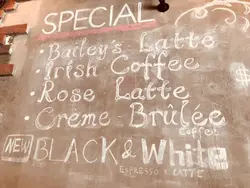 SPECIAL
• Bailey's Latte
• Irish Coffee
• Rose Latte
• Crème-Brûlée
Coffee
NEW BLACK & White
ESPRESSO & LATTE